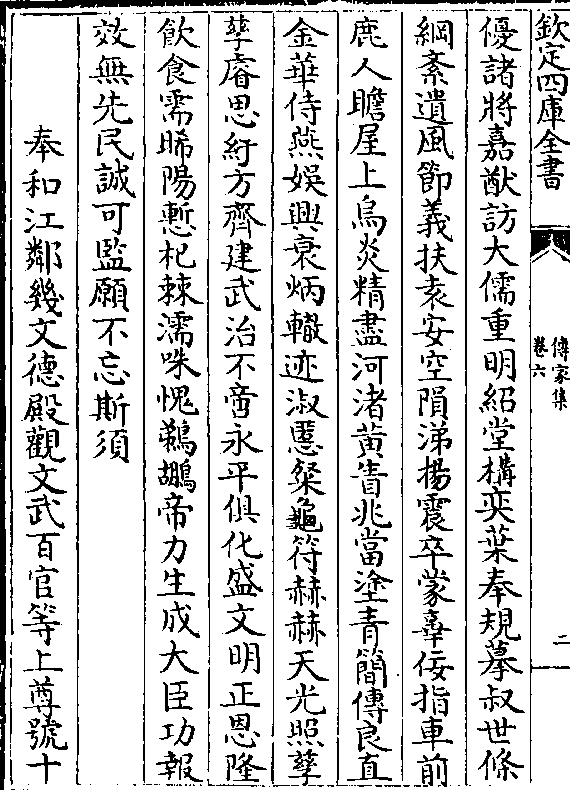 欽定四庫全書
傳家集
卷六
二
優諸將嘉猷訪大儒重明紹堂構奕葉奉規摹叔世條
綱紊遺風節義扶袁安空隕涕楊震卒蒙辜佞指車前
鹿人瞻屋上烏炎精盡河渚黄眚兆當塗青簡傳良直
金華侍燕娯興衰炳轍迹淑慝粲龜符赫赫天光照孽
孽睿思紆方齊建武治不啻永平俱化盛文明正恩隆
飲食需晞陽慙杞棘濡咮愧鵜鶘帝力生成大臣功報
效無先民誠可監願不忘斯須
奉和江鄰幾文德殿觀文武百官等上尊號十